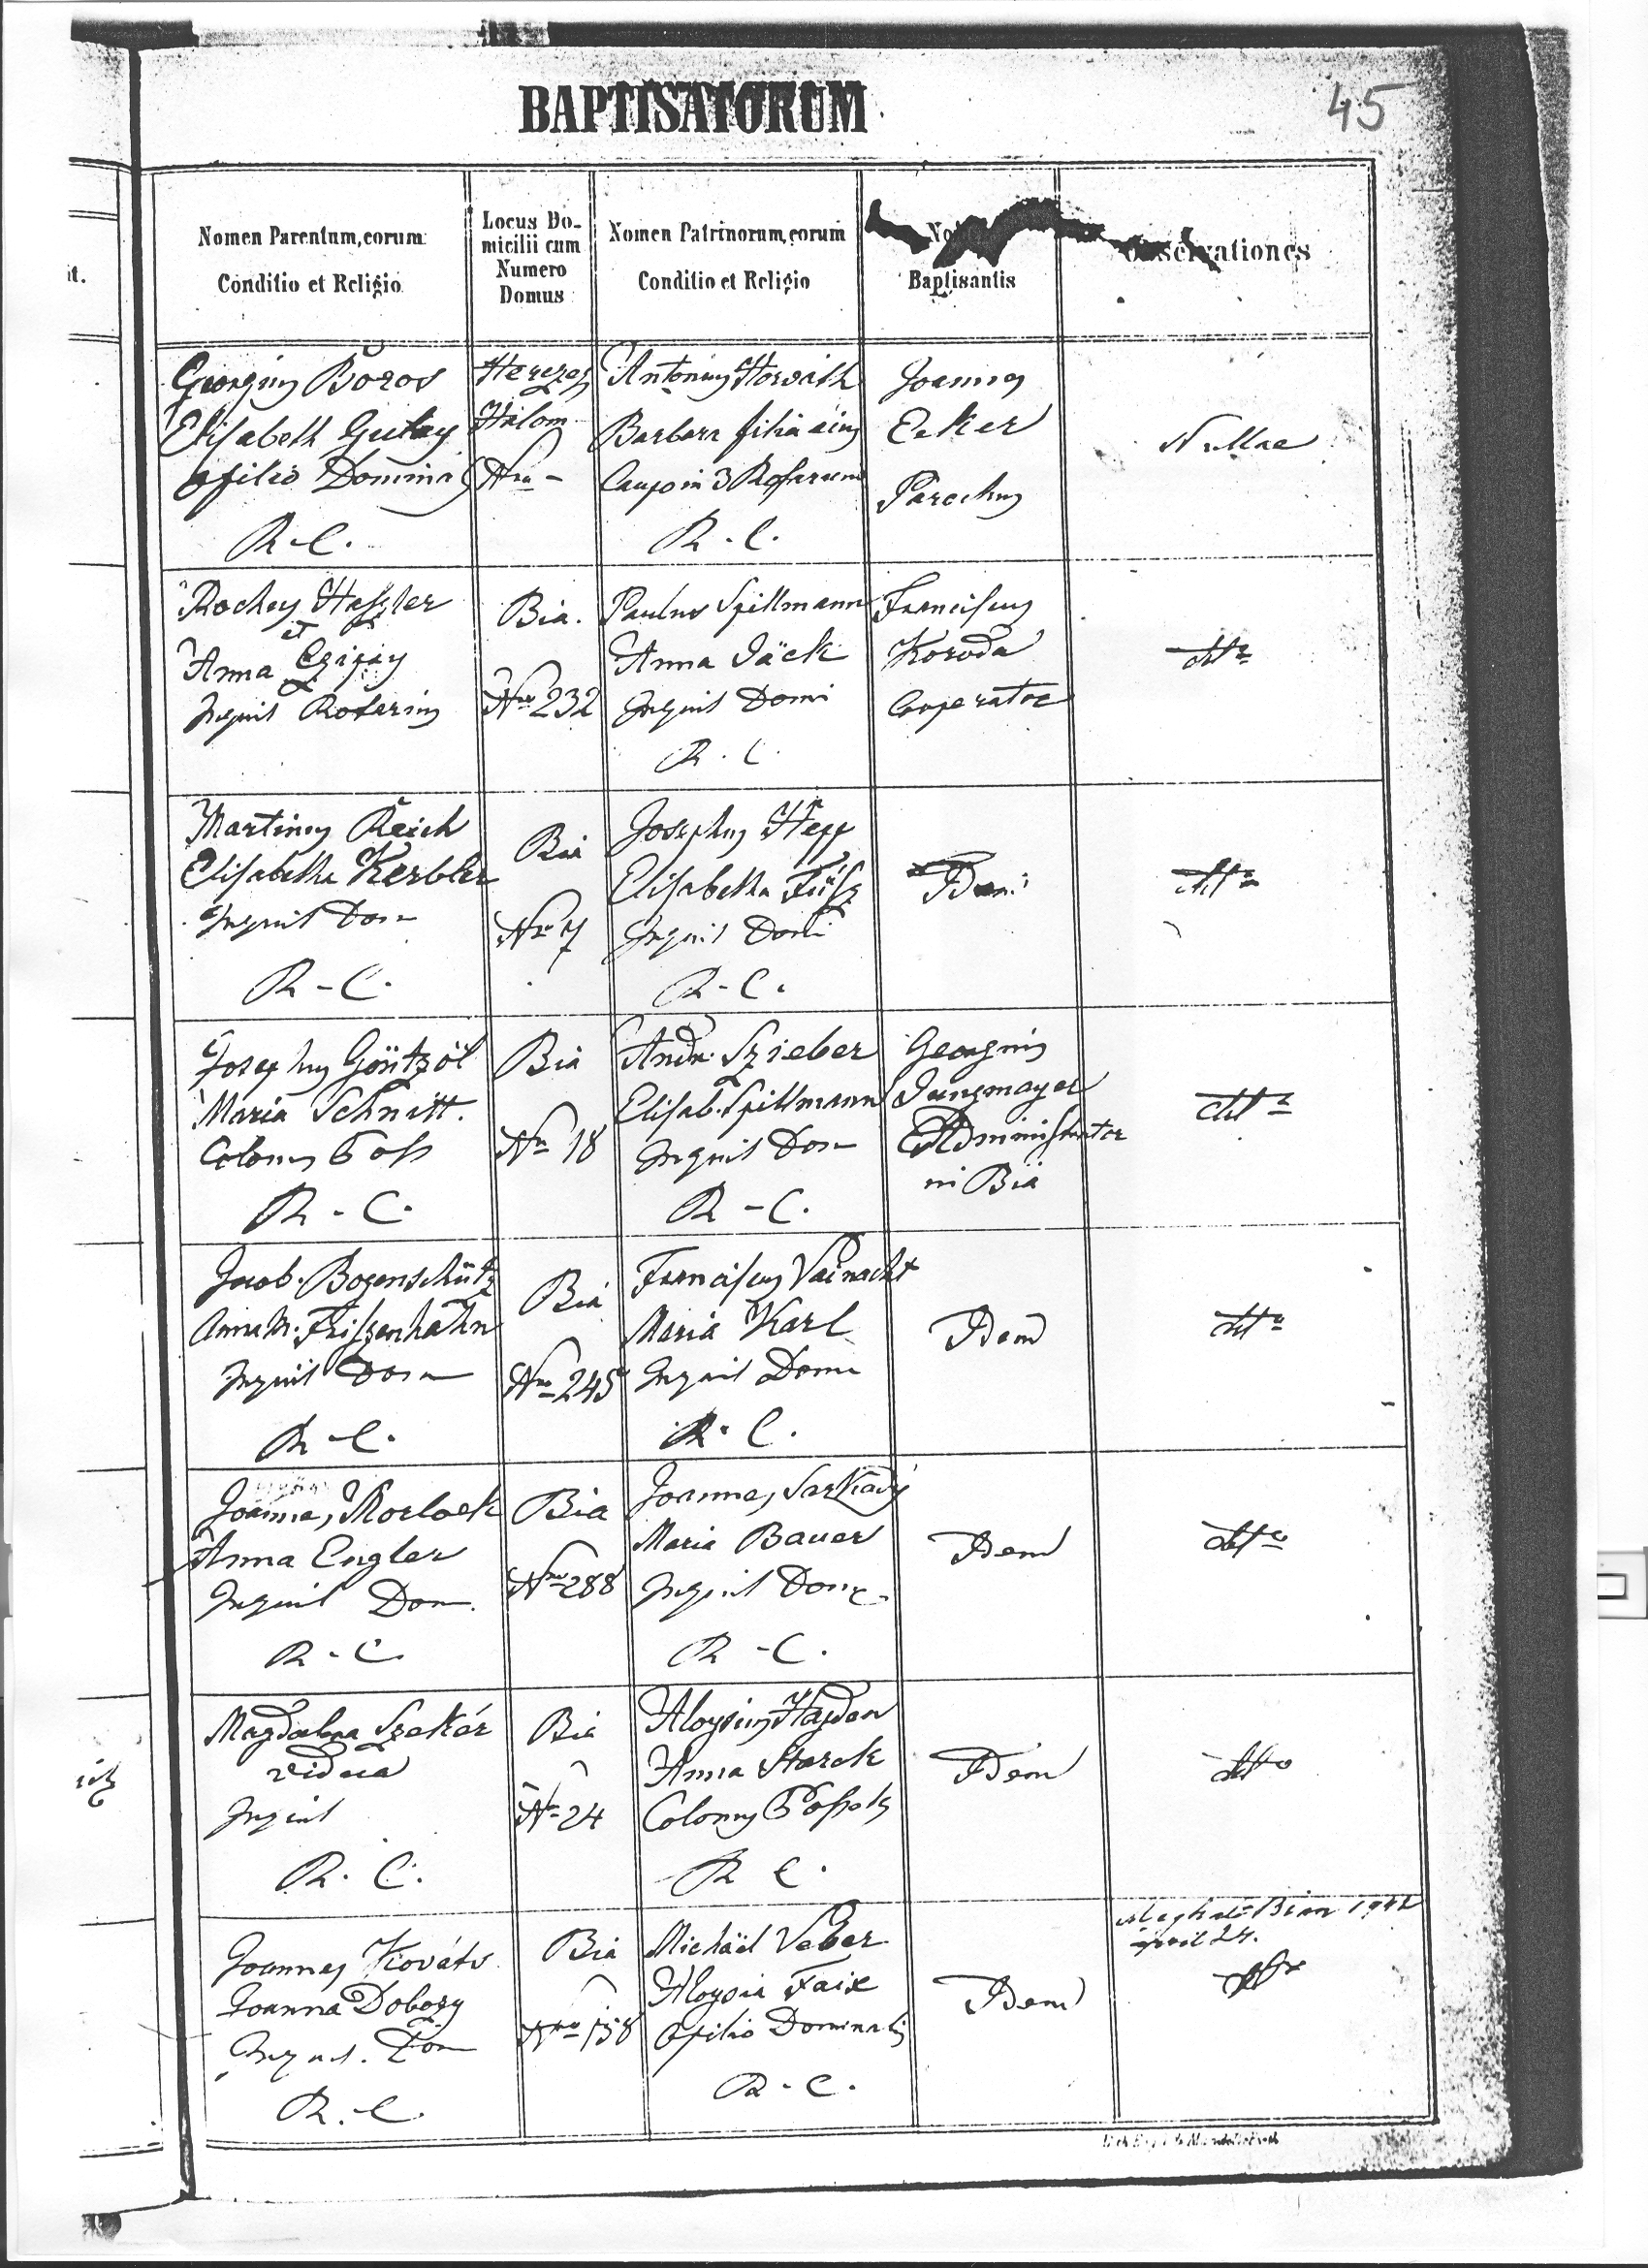 BAPTISATORUM
45
it.
Nomen Parentum, eorum
Conditio et Religio
Locus Do-
micilii cum
Numero
Domus
Nomen Patrinorum, eorum
Conditio et Religio
Baptisantis
Observationes
Georgius Boros
Elisabeth Gulay
opilio Dominal
R.-C.
Herczeg
Halom
Nro -
Antonius Horváth
Barbara filia eius
Caupo in 3 Rosarum
R.-C.
Joannes
Ecker
Parochus
Nullae
Rochus Haszler
et
Anna Czigay
Inquil Rotarius
Bia.
Nro 232
Paulus Spillmann
Anna Jäck
Inquil Domi
R. C.
Franciscus
Koroda
Cooperator
dtto
Martinus Reich
Elisabetha Kerbler
Inquil Dom
R-C.
Bia
Nro 7
Josephus Hepp
Elisabetha Füsz
Inquil Domi
R-C.
Idem
dtto
Josephus Göntzöl
Maria Schnitt.
Colonus Poss
R-C.
Bia
Nro 18
Andr. Szieber
Elisab. Spillmann
Inquil Dom
R-C.
Georgius
Jungmayer
Administrator
in Bia
dtto
Jacob. Bogenschütz
Anna M. Friszenhahn
Inquil Dom
R-C.
Bia
Nro 245
Franciscus Vainacht
Maria Karl
Inquil Domi
R. C.
Idem
dtto
Joannes Morlock
Anna Engler
Inquil Dom.
R-C
Bia
Nro 288
Joannes Sarkadÿ
Maria Bauer
Inquil Dom
R-C.
Idem
dtto
Magdalena Szekér
vidua
Inquil
R. C.
Bia
Nro 24
Aloysius Hajdan
Anna Starck
Colonus Possess
R C.
Idem
dtto
Joannes Kováts
Joanna Dobozy
Inquil. Dom
R.-C.
Bia
Nro 158
Michaël Veber
Aloysia Faix
Opilio Dominalis
R-C.
Idem
Meghalt Bián 1942
april 24.
dtto